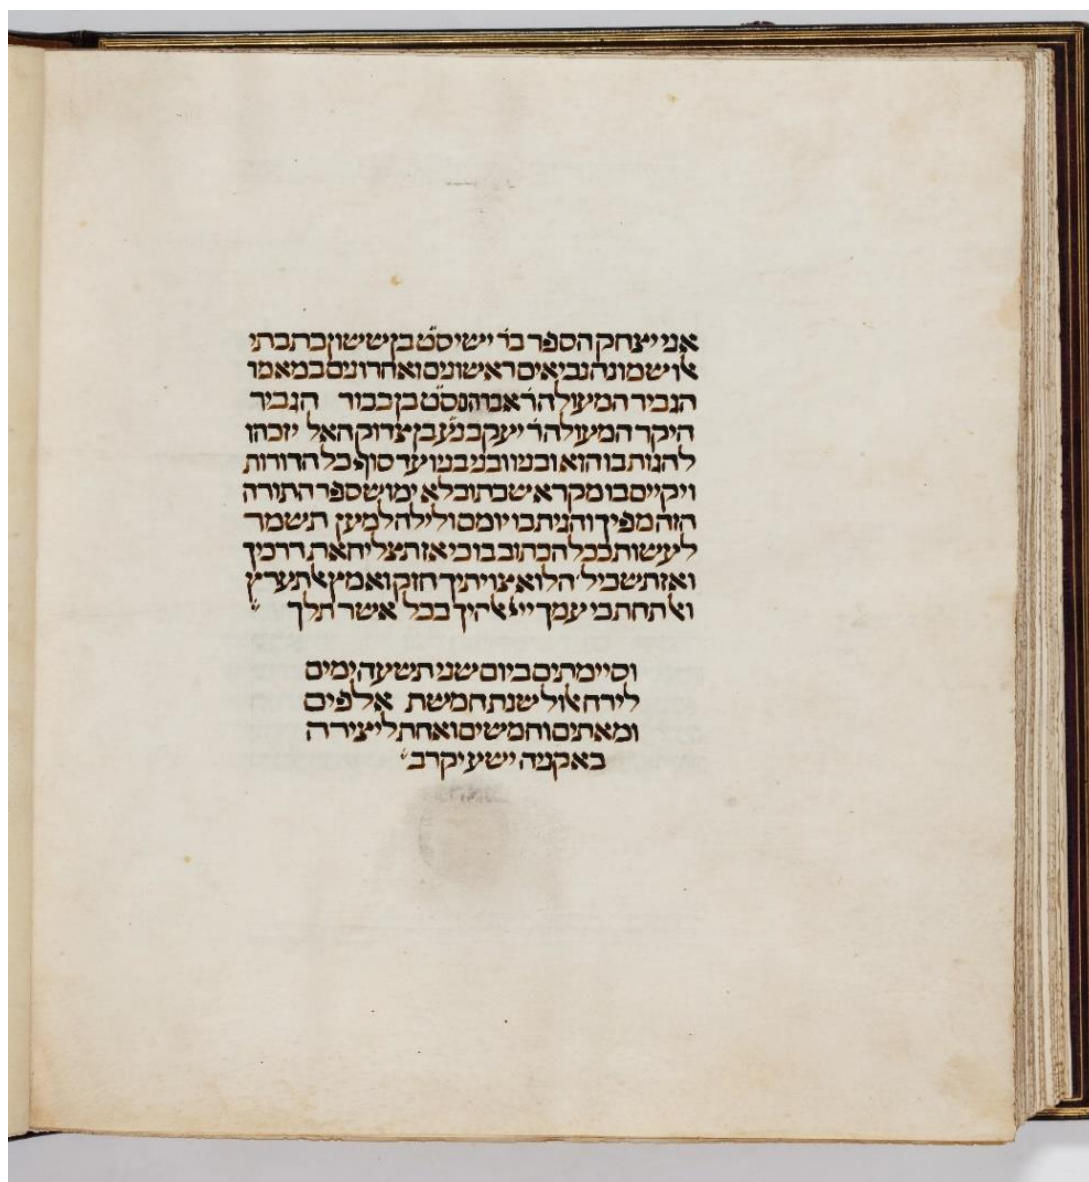 אני יצחק הספר בר׳ ישי ס״ט בן ששון כתבתי
אלו שמונה נביאים ראשונים ואחרונים במאמר
הגביר המעולה ר׳ אברהם ס״ט בן כבוד הגביר
היקר המעולה ר׳ יעקב נ״ע בן צדוק האל יזכהו
להגות בו הוא ובניו ובני בניו עד סוף כל הדורות
ויקיים בו מקרא שכתוב לא ימוש ספר התורה
הזה מפיך והגית בו יומם ולילה למען תשמר
לעשות ככל הכתוב בו כי אז תצליח את דרכיך
ואז תשכיל׳ הלוא צויתיך חזק ואמץ אל תערץ
ואל תחת כי עמך ייי אלהיך בכל אשר תלך ״
וסיימתים ביום שני תשעה ימים
לירח אלול שנת חמשת אלפים
ומאתים וחמשים ואחת ליצירה
באקניה ישע יקרב ״